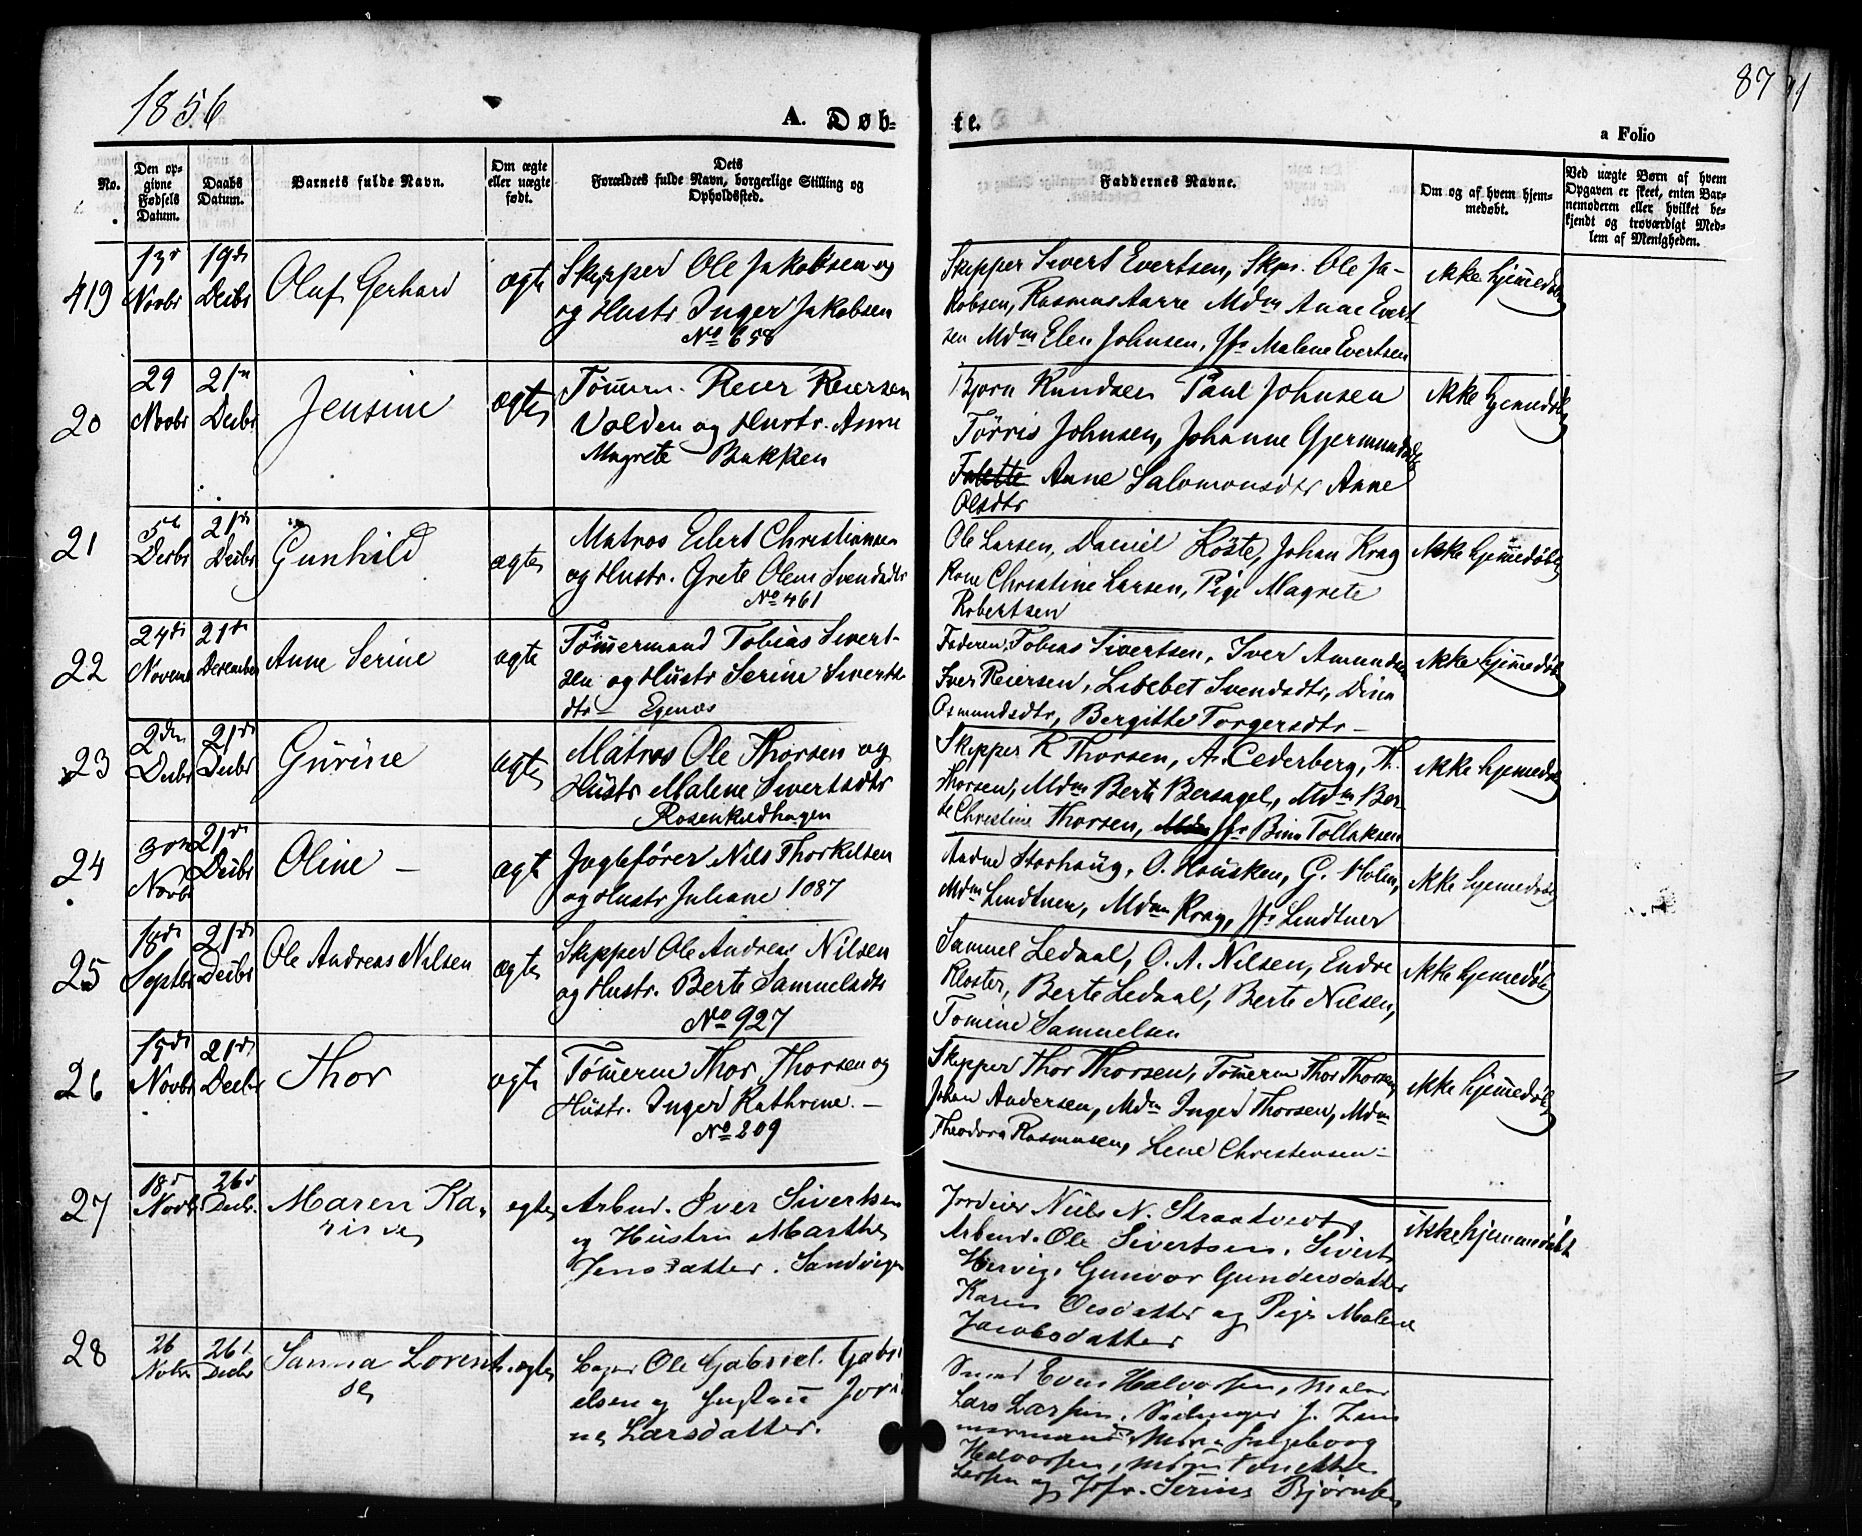 1856
A. Døb-
te.
87
a Folio
No.
Den op-
givne
Fødsels
Datum.
Daabs
Datum.
Barnets fulde Navn.
Om ægte
eller uægte
født.
Dets
Forældres fulde Navn, borgerlige Stilling og
Opholdssted.
Faddernes Navne.
Om og af hvem hjem-
medøbt.
Ved uægte Børn af hvem
Opgaven er skeet, enten Bar-
nemoderen eller hvilket be-
kjendt og troværdigt Med-
lem af Menigheden.
419
13d
Novbr
19de
Decbr
Oluf Gerhard
ægte
Skipper Ole Jakobsen og
og Hustr Inger Jakobsen
No 658
Skipper Sivert Evertsen, Skpr. Ole Ja-
kobsen, Rasmus Aarre Mdm Anne Evert
sen Mdm Elen Johnsen, Jfr Malene Evertsen
ikke hjemedøbt
20
29
Novbr
21
Decbr
Jensine
ægte
Tømerm. Reier Reiersen
Volden og Hustr. Anne
Magrete Bakken
Bjørn Knudsen Paul Johnsen
Tørris Johnsen, Johanne Gjermundsdtr
Anne Salomonsdtr Anne
Olsdtr
ikke hjemmedøbt
21
5te
Decbr
21de
Decbr
Gunhild
ægte
Matros Eilert Christiansen
og Hustr. Grete Olene Svendsdtr
No 461
Ole Larsen, Daniel Røste, Johan Krag
Kone Christine Larsen, Pige Magrete
Robertsen
ikke hjemmedøbt
22
24de
Novemb
21de
December
Anne Serine
ægte
Tømmermand Tobias Sivert-
sen og Hustr Serine Siverts
dtr Egenæs
Faderen, Tobias Sivertsen, Iver Amundsen
Iver Reiersen, Lisebet Svendsdtr, Dina
Osmundsdtr, Bergitte Torgersdtr
ikke hjemedøbt
23
2den
Decbr
21de
Decbr
Gurine
ægte
Matros Ole Thorsen og
Hustr Malene Sivertsdtr
Rosenkildhagen
Skipper R Thorsen, A. Cederberg, Th.
Thorsen, Mdm Berte Bersagel, Mdm Ber-
te Christine Thorsen, Jfr Bine Tollaksen
ikke hjemedøbt
24
30te
Novbr
21de
Decbr
Oline
ægt
Jagtefører Nils Thorkilsen
og Hustr Juliane 1087
Aadne Storhaug, O. Hausken, G. Holm,
Mdm Lindtner, Mdm Krag, Jfr Lindtner
ikke hjemedøbt
25
18de
Septbr
21de
Decbr
Ole Andreas Nilsen
ægte
Skipper Ole Andreas Nilsen
og Hustr. Berte Samuelsdtr
No 927
Samuel Ledaal, O. A. Nilsen, Endre
Kloster, Berte Ledaal, Berte Nilsen,
Tomine Samuelsen
ikke hjemedøbt
26
15de
Novbr
21de
Decbr
Thor
ægte
Tømerm Thor Thorsen og
Hustr. Inger Kathrine.
No 209
Skipper Thor Thorsen, Tømerm Thor Thorsen,
Johan Andersen, Mdm Inger Thorsen, Mdm
Theodora Rasmusen, Lene Christensen
ikke hjemedøbt
27
18d
Novb
26d
Decbr.
Maren Ka-
rine
egte
Arbmd. Iver Sivertsen
og Hustru Marthe
Jensdatter. Sandvigen
Niels N. Strandvedt
Arbmd. Ole Sivertsen. Sivert
Hervig. Gunvor Gundersdatter
Karen Olsdatter og Pige Malene
Jacobsdatter
ikke hjemmedøbt
28
26
Nobr
26d
Decbr
Sanna Lorent-
se
egte
Bager Ole Gabriel. Gabri
elsen og Hustru Jori
ne Larsdatter.
Smed Even Halvorsen, Maler
Lars Larsen, Seilmager J. Zim
mermann, Mdm Ingeborg
Halvorsen, Mdm Tonette
Larsen og Jofr. Serine Bjørnsen